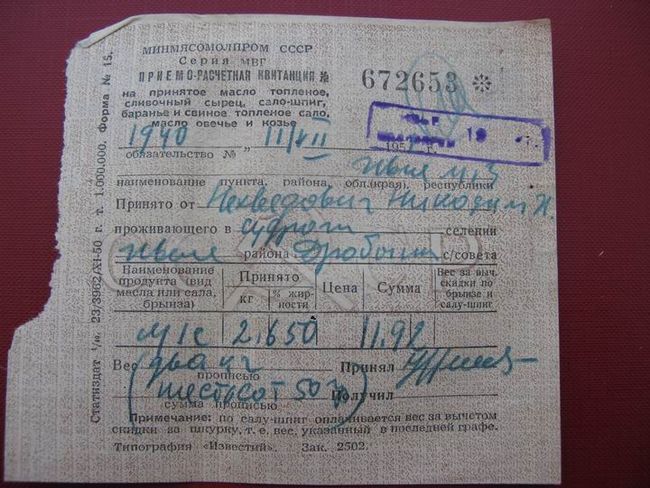 МИНМЯСОМОЛПРОМ СССР
Серия МВГ
ПРИЕМО-РАСЧЕТНАЯ КВИТАНЦИЯ № 672653
на принятое масло топленое,
сливочный сырец, сало-шпиг,
баранье и свиное топленое сало,
масло овечье и козье
1940 " 11/VII 195 г.
обязательство №
наименование пункта, района, обл.(края), республики
Принято от Нехведович Никодим И.
проживающего в селении
района с/совета
Наименование продукта (вид масла или сала, брынза) Принято кг % жирности Цена Сумма Вес за выч. скидки по брынзе и сало-шпиг
м/с 2.650 11.92
Вес два кг Принял
прописью
(шестьсот 50 г) Получил
сумма прописью
Примечание: по салу-шпиг оплачивается вес за вычетом
скидки за шкурку, т. е. вес, указанный в последней графе.
Типография «Известий». Зак. 2502.
Статиздат з/и. 23/3962/XI-50 г. т. 1.000.000. Форма № 15.